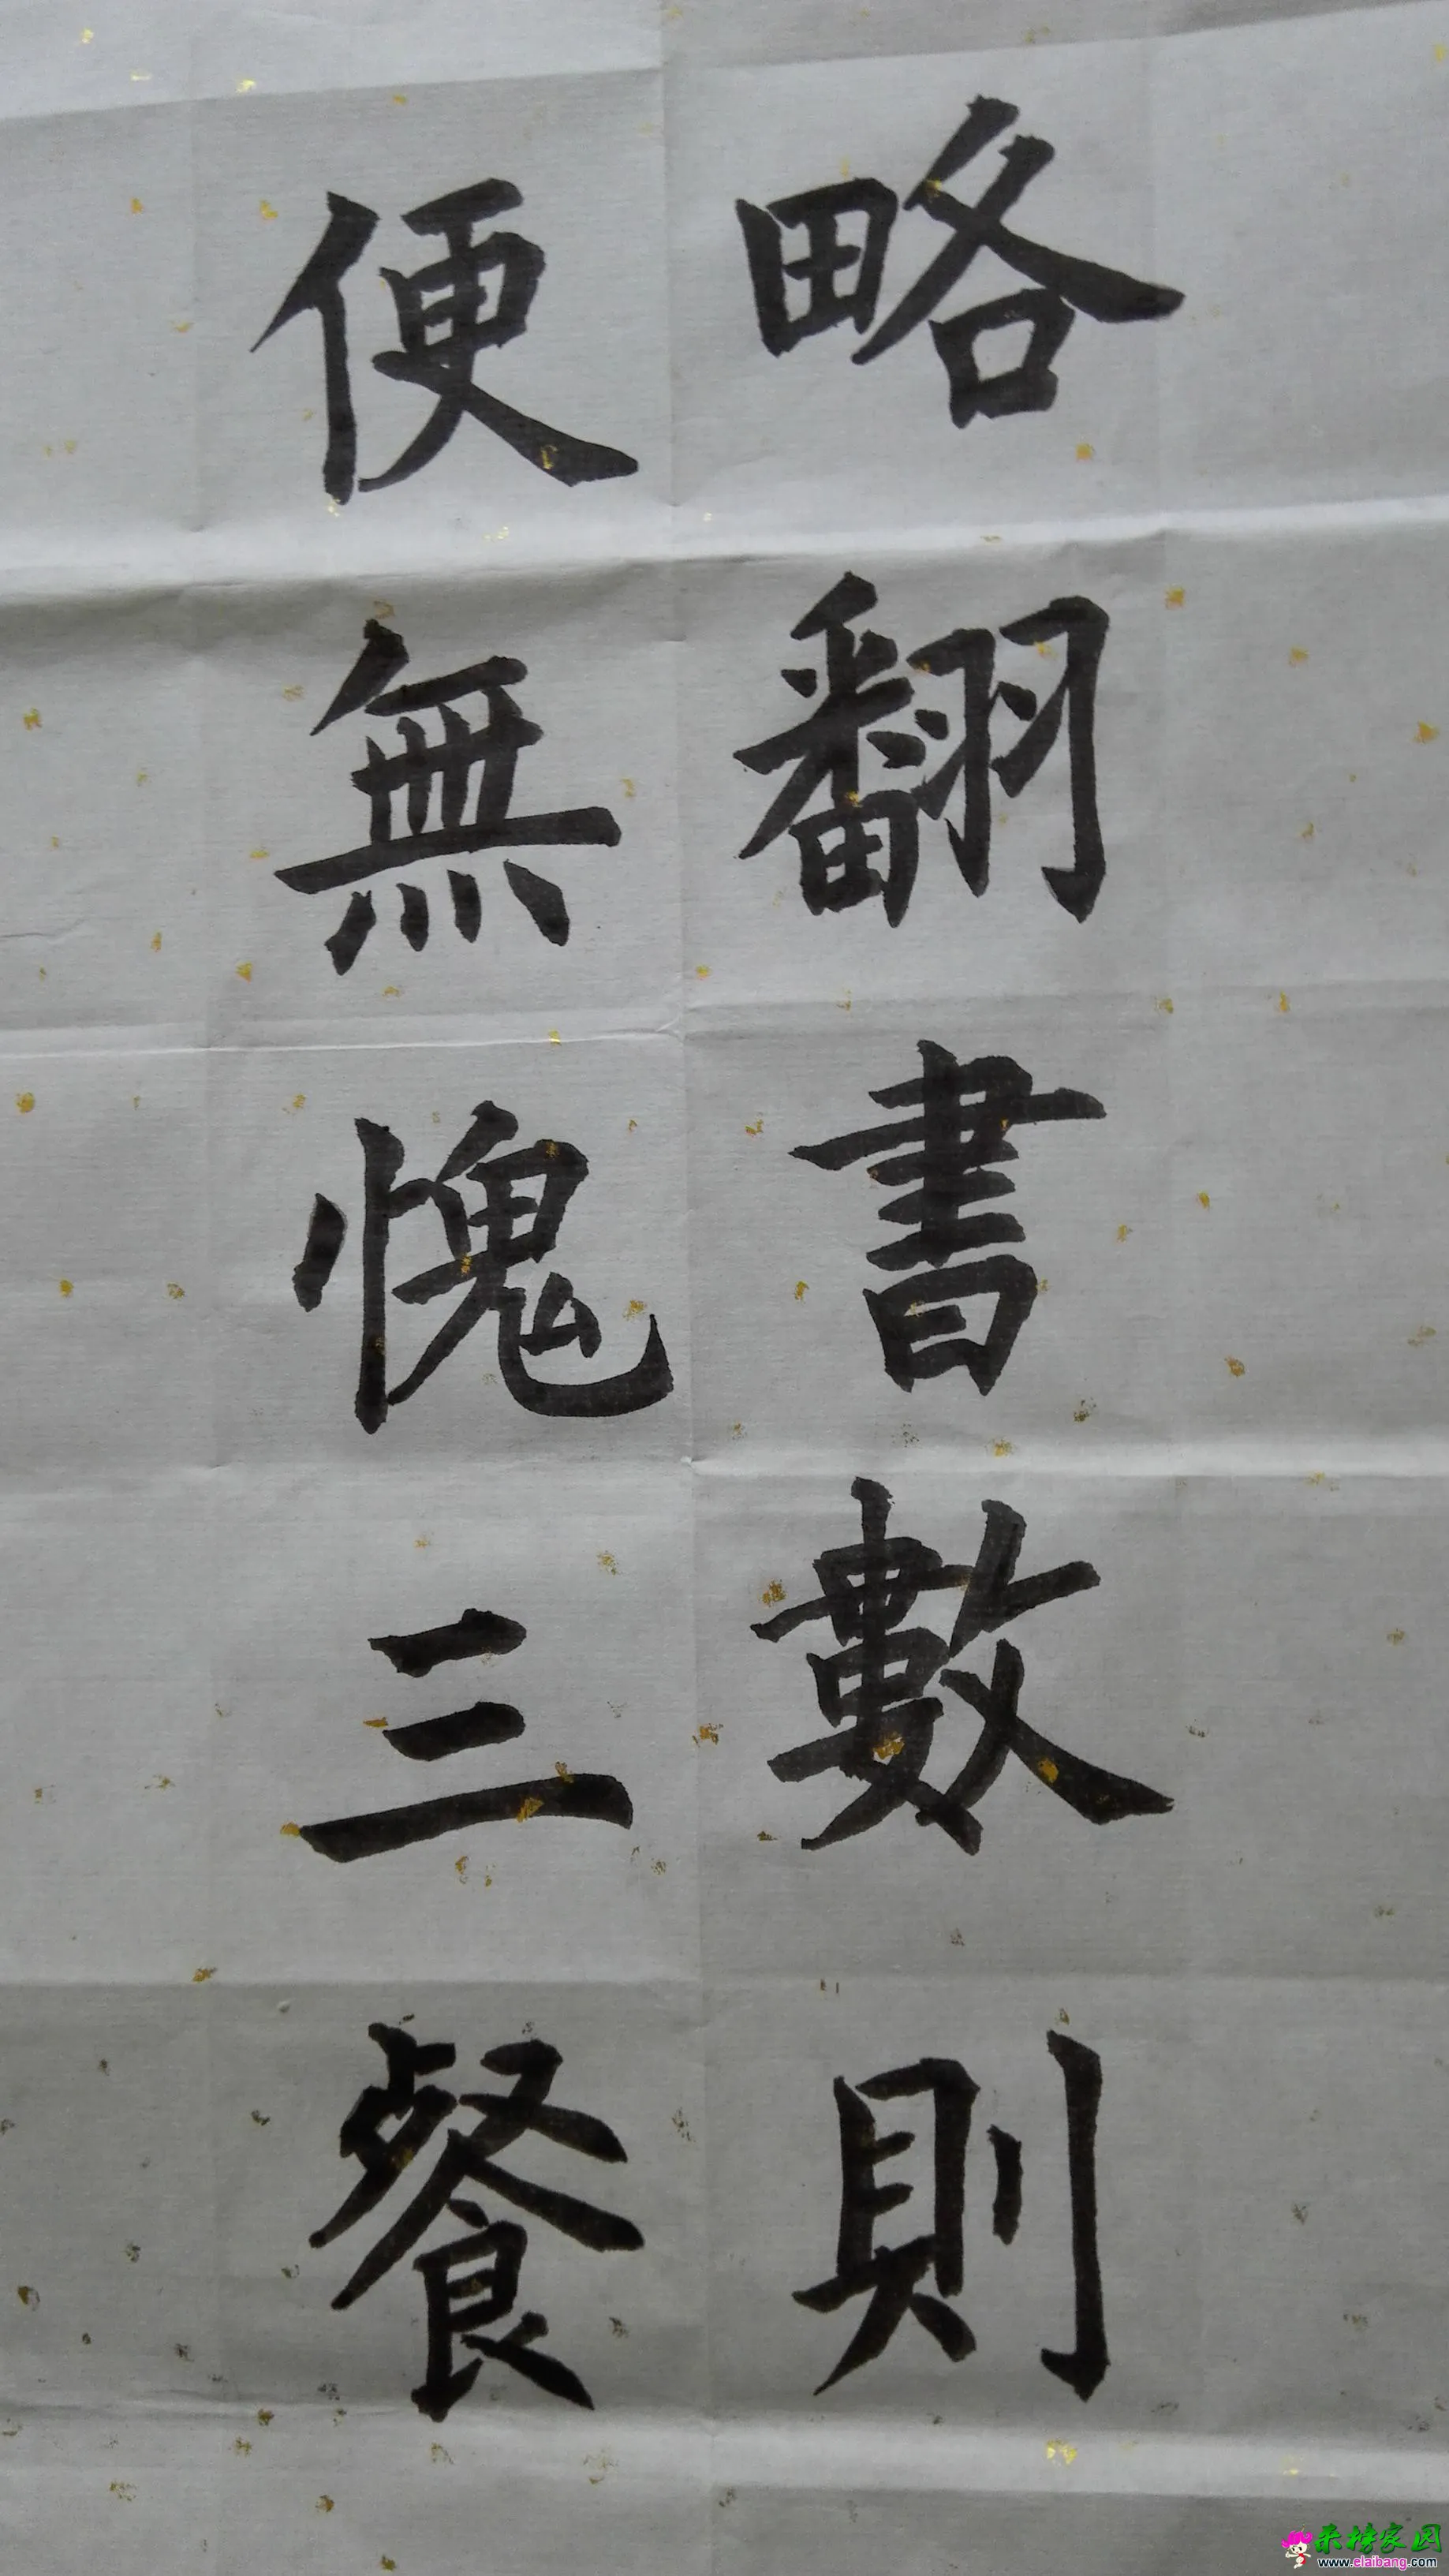 略翻書數則
便無愧三餐
来榜家园
www.elaibang.com